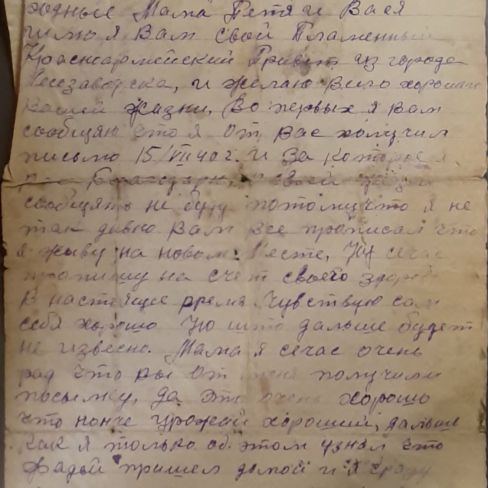 родные Мама Петя и Вася
шлю я Вам свой Пламенный
Красноармейский Привет из города
и желаю Всиго хорошаго
Вашей жизни. Во первых я Вам
сообщаю что я от Вас получил
письмо 15/VII 40 г. и За которое я
сообщять не буду потомучто я не
так давно Вам все прописал что
я живу на новом месте, Но сечас
пропишу на счет своего здоров
В настеящее время Чувствую сам
себя хорошо Но што дальше будет
не извесно. Мама я сечас очень
рад что вы от меня получили
посылку, да это очень хорошо
что нонче урожай хороший, дальше
как я только об этом узнал что
пришел домой и я сразу